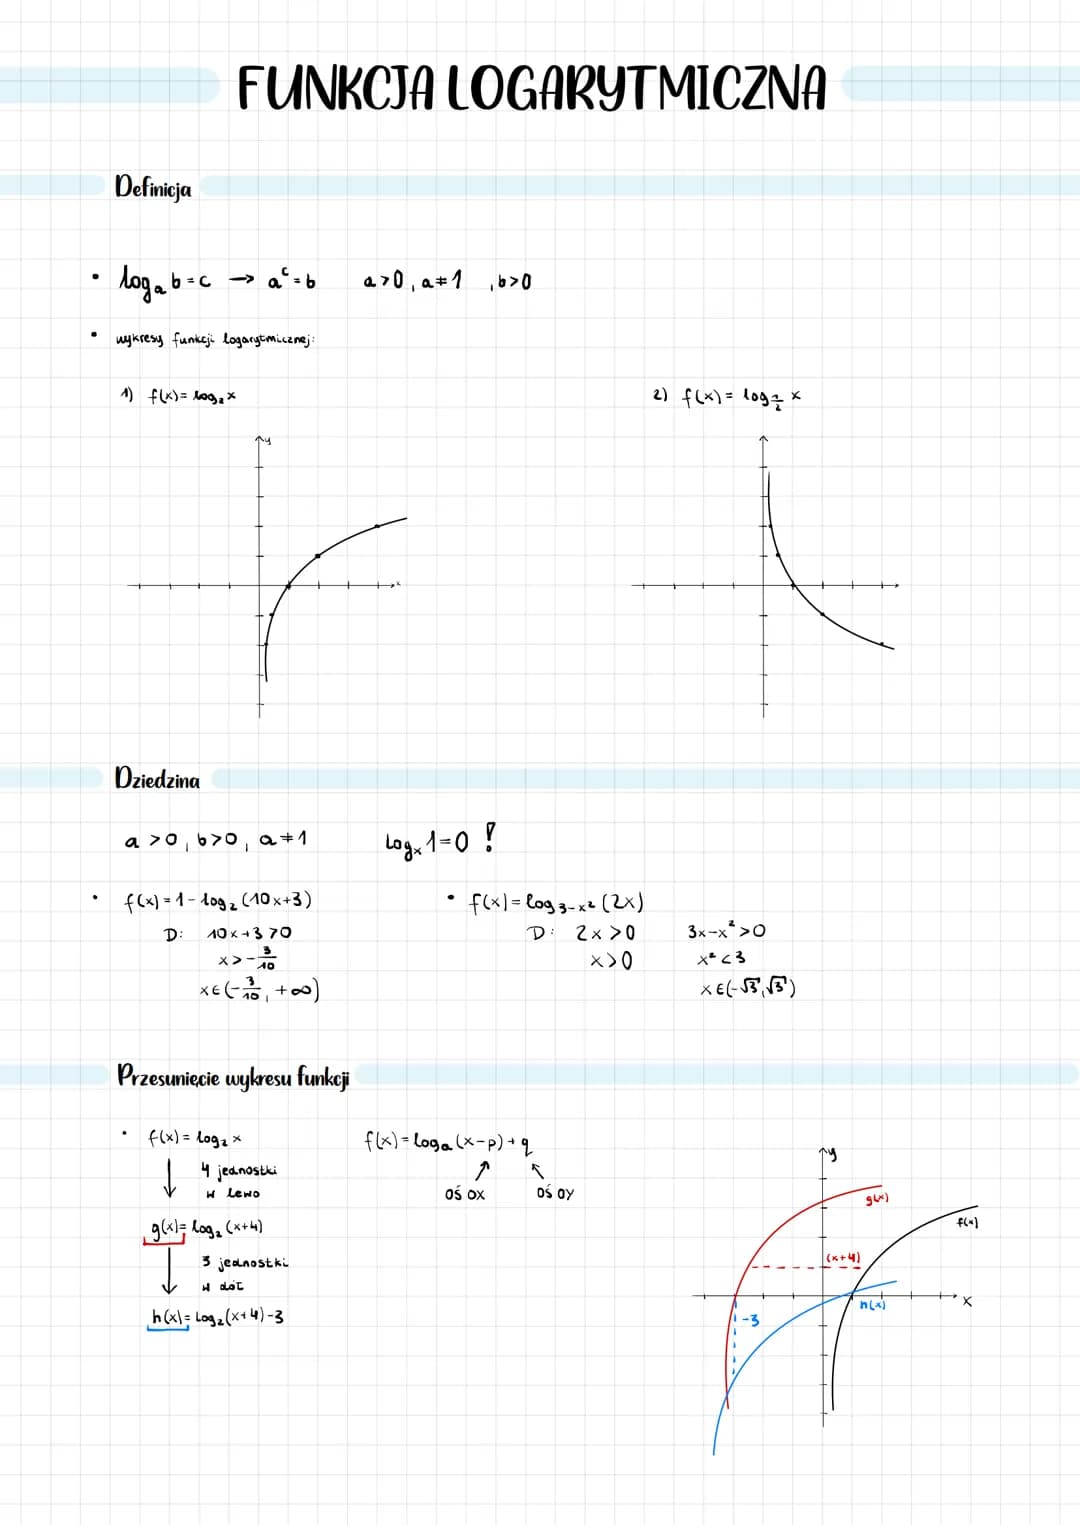 FUNKCJA LOGARYTMICZNA
Definicja
• logₐ b = c → aᶜ = b a>0, a≠1, b>0
• wykresy funkcji logarytmicznej:
1) f(x) = log₂ x
2) f(x) = log_{1/2} x
y
x
Dziedzina
a >0, b>0, a≠1 logₓ 1=0 !
• f(x) = 1 - log₂ (10x+3)
D: 10x+3>0
x > -3/10
x∈(-3/10, +∞)
• f(x) = log_{3-x²} (2x)
D: 2x >0 3x-x² >0
x>0 x² <3
x∈(-√3, √3)
Przesunięcie wykresu funkcji
• f(x) = log₂ x
↓ 4 jednostki
w lewo
g(x) = log₂ (x+4)
↓ 3 jednostki
w dół
h(x) = log₂ (x+4) -3
f(x) = logₐ (x-p) + q
oś OX oś OY
y
g(x)
f(x)
(x+4)
h(x)
x
-3